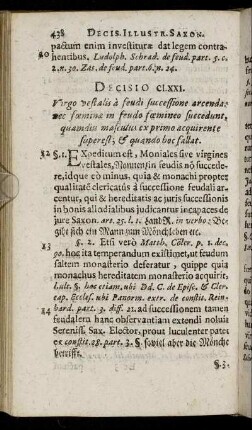 438 DECIS. ILLUSTR. SAXON.
pactum enim investituræ dat legem contra-
hentibus. Ludolph. Schrad. de feud. part. 5. c.
2. n. 30. Zas. de feud. part. 6. n. 24.
DECISIO CLXXI.
Virgo vestalis à feudi successione arcenda:
nec fœminæ in feudo fœmineo succedunt,
quamdiu masculus ex primo acquirente
superest; & quando hoc fallat.
82 §. 1. Expeditum est, Moniales sive virgines
vestales, Nonnen in feudis nõ succede-
re, idque eò minus, quia & monachi propter
qualitatẽ clericatûs à successione feudali ar-
centur, qui & hereditatis ac juris successionis
in bonis allodialibus judicantur incapaces de
jure Saxon. art. 25. l. 1. Landr. in verbo: Be-
giht sich ein Mann zum Münchleben etc.
§. 2. Etsi verò Matth. Cöler. p. 1. dec.
83
90. hoc ita temperandum existimet, ut feudum
saltem monasterio deferatur, quippe quia
monachus hereditatem monasterio acquirit.
Auth. §. hoc etiam. ubi Dd. C. de Episc. & Cler.
cap. Eccles. ubi Panorm. exer. de constit. Rein-
84
hard. part. 3. diff. 21. ad successionem tamen
feudalera hanc observantiam extendi noluit
Sereniss. Sax. Elector, prout luculenter patet
ex constit. 28. part. 3. §. soviel aber die Mönche
betrifft.
§. 3.